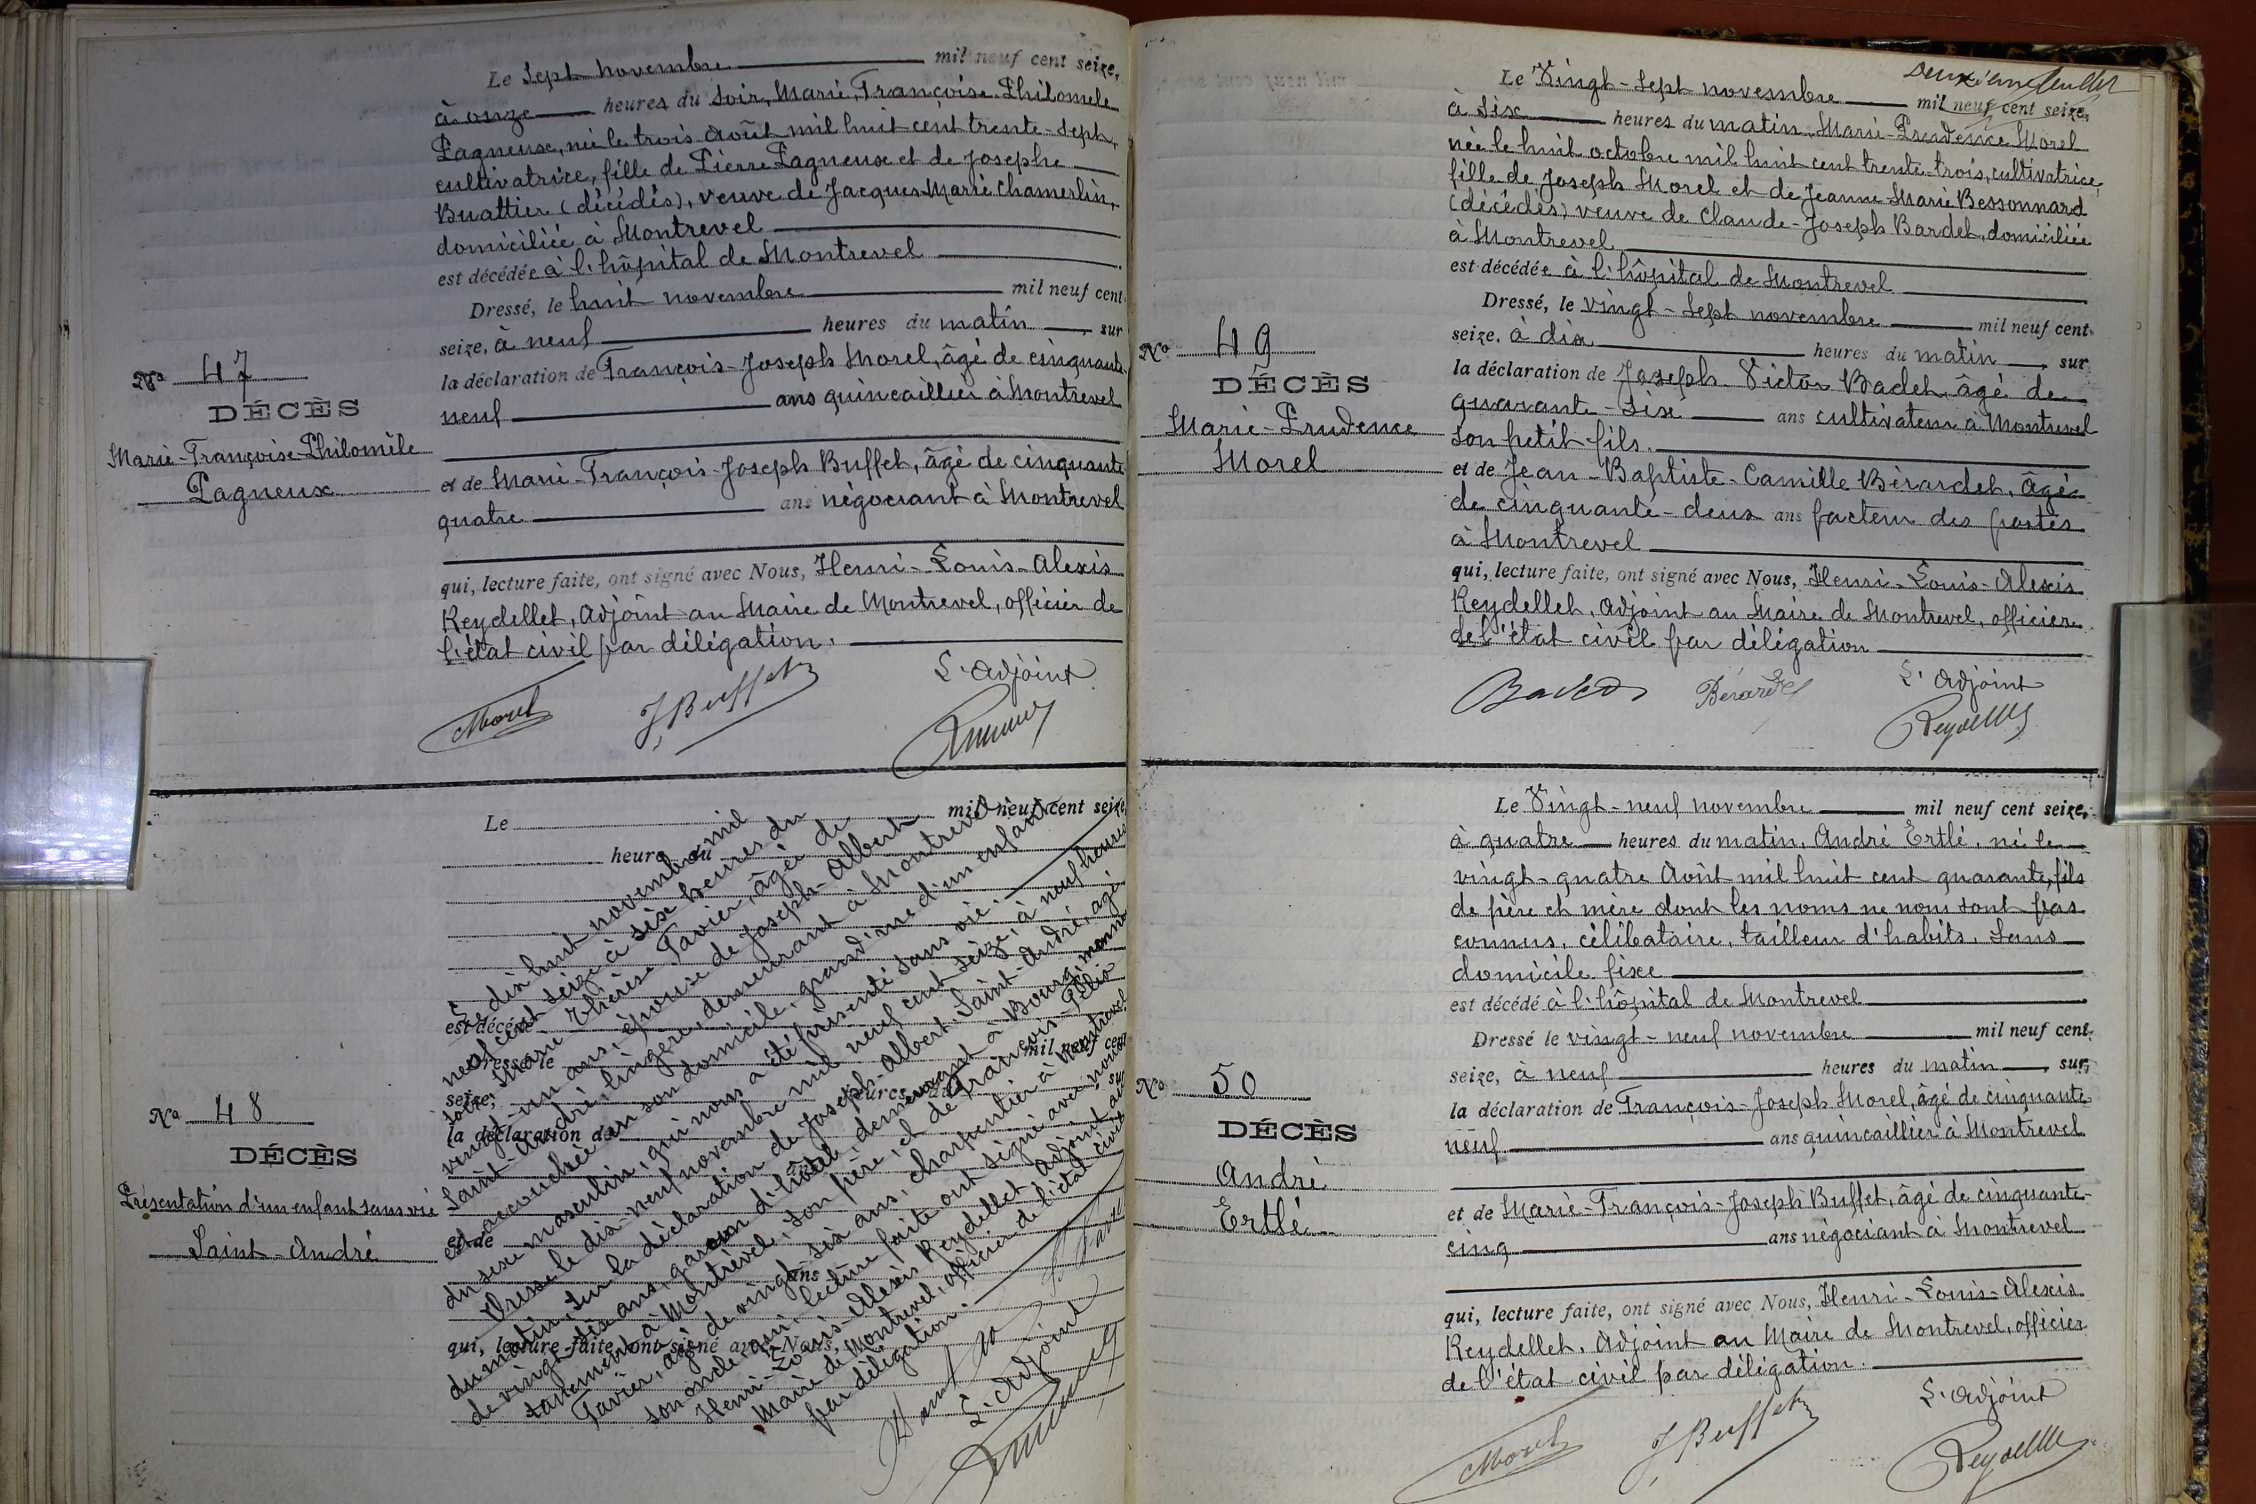 Le Sept novembre mil neuf cent seize,
à onze heures du Soir, Marie Françoise Philomele
Pagneux, née le trois Août mil huit cent trente-sept,
cultivatrice, fille de Pierre Pagneux et de Josephe
Buattier (décédés), veuve de Jacques Marie Chamerlin,
domiciliée à Montrevel
est décédée à l'hôpital de Montrevel
Dressé, le huit novembre mil neuf cent
seize, à neuf heures du matin, sur
la déclaration de François-Joseph Morel, âgé de cinquante
neuf ans quincaillier à Montrevel
et de Marie-François-Joseph Buffet, âgé de cinquante
quatre ans négociant à Montrevel
qui, lecture faite, ont signé avec Nous, Henri-Louis-Alexis
Reydellet, Adjoint au Maire de Montrevel, officier de
l'état civil par délégation.
L'Adjoint
Morel
J. Buffet
No 47
DÉCÈS
Marie-Françoise-Philomèle
Pagneux
Le mil neuf cent seize,
heure du
est décédé
Dressé le mil neuf cent
seize, heures du
sur
la déclaration de
et de
ans
qui, lecture faite, ont signé avec Nous,
Le dix huit novembre mil
neuf cent seize à six heures du
soir, Marie Thérèse Tavier, âgée de
vingt-un ans, épouse de Joseph-Albert
Saint-André, lingère, demeurant à Montrevel
est accouchée en son domicile, grand'rue d'un enfant
du sexe masculin, qui nous a été présenté sans vie.
Dressé le dix-neuf novembre mil neuf cent seize, à neuf heures
du matin, sur la déclaration de Joseph-Albert Saint-André, âgé
de vingt-six ans, garçon d'hôtel, demeurant à Bourg, momen
tanément à Montrevel, son père, et de François-Félix
Tavier, âgé de vingt six ans, charpentier à Montrevel
son oncle, qui, lecture faite ont signé avec nous
Henri-Louis-Alexis Reydellet Adjoint au
Maire de Montrevel, officier de l'état civil
par délégation.
L'Adjoint
No 48
DÉCÈS
Présentation d'un enfant sans vie
Saint-André
Deuxième feuillet
Le Vingt-sept novembre mil neuf cent seize,
à six heures du matin, Marie-Prudence Morel
née le huit octobre mil huit cent trente-trois, cultivatrice,
fille de Joseph Morel et de Jeanne-Marie Bessonnard
(décédés) veuve de Claude-Joseph Bardet, domiciliée
à Montrevel
est décédée à l'hôpital de Montrevel
Dressé, le vingt-sept novembre mil neuf cent
seize, à dix heures du matin, sur
la déclaration de Joseph Victor Badet, âgé de
quarante-six ans cultivateur à Montrevel
son petit fils.
et de Jean-Baptiste-Camille Bérardet, âgé
de cinquante-deux ans facteur des postes
à Montrevel
qui, lecture faite, ont signé avec Nous, Henri-Louis-Alexis
Reydellet, Adjoint au Maire de Montrevel, officier
de l'état civil par délégation
L'Adjoint
Bérardet
Reydellet
No 49
DÉCÈS
Marie-Prudence
Morel
Le Vingt-neuf novembre mil neuf cent seize,
à quatre heures du matin, André Ertlé, né le
vingt-quatre Août mil huit cent quarante, fils
de père et mère dont les noms ne nous sont pas
connus, célibataire, tailleur d'habits, sans
domicile fixe
est décédé à l'hôpital de Montrevel
Dressé le vingt-neuf novembre mil neuf cent
seize, à neuf heures du matin, sur
la déclaration de François-Joseph Morel, âgé de cinquante
neuf ans quincaillier à Montrevel
et de Marie-François-Joseph Buffet, âgé de cinquante-
cinq ans négociant à Montrevel
qui, lecture faite, ont signé avec Nous, Henri-Louis-Alexis
Reydellet, Adjoint au Maire de Montrevel, officier
de l'état civil par délégation.
L'Adjoint
Morel
J. Buffet
Reydellet
No 50
DÉCÈS
André
Ertlé